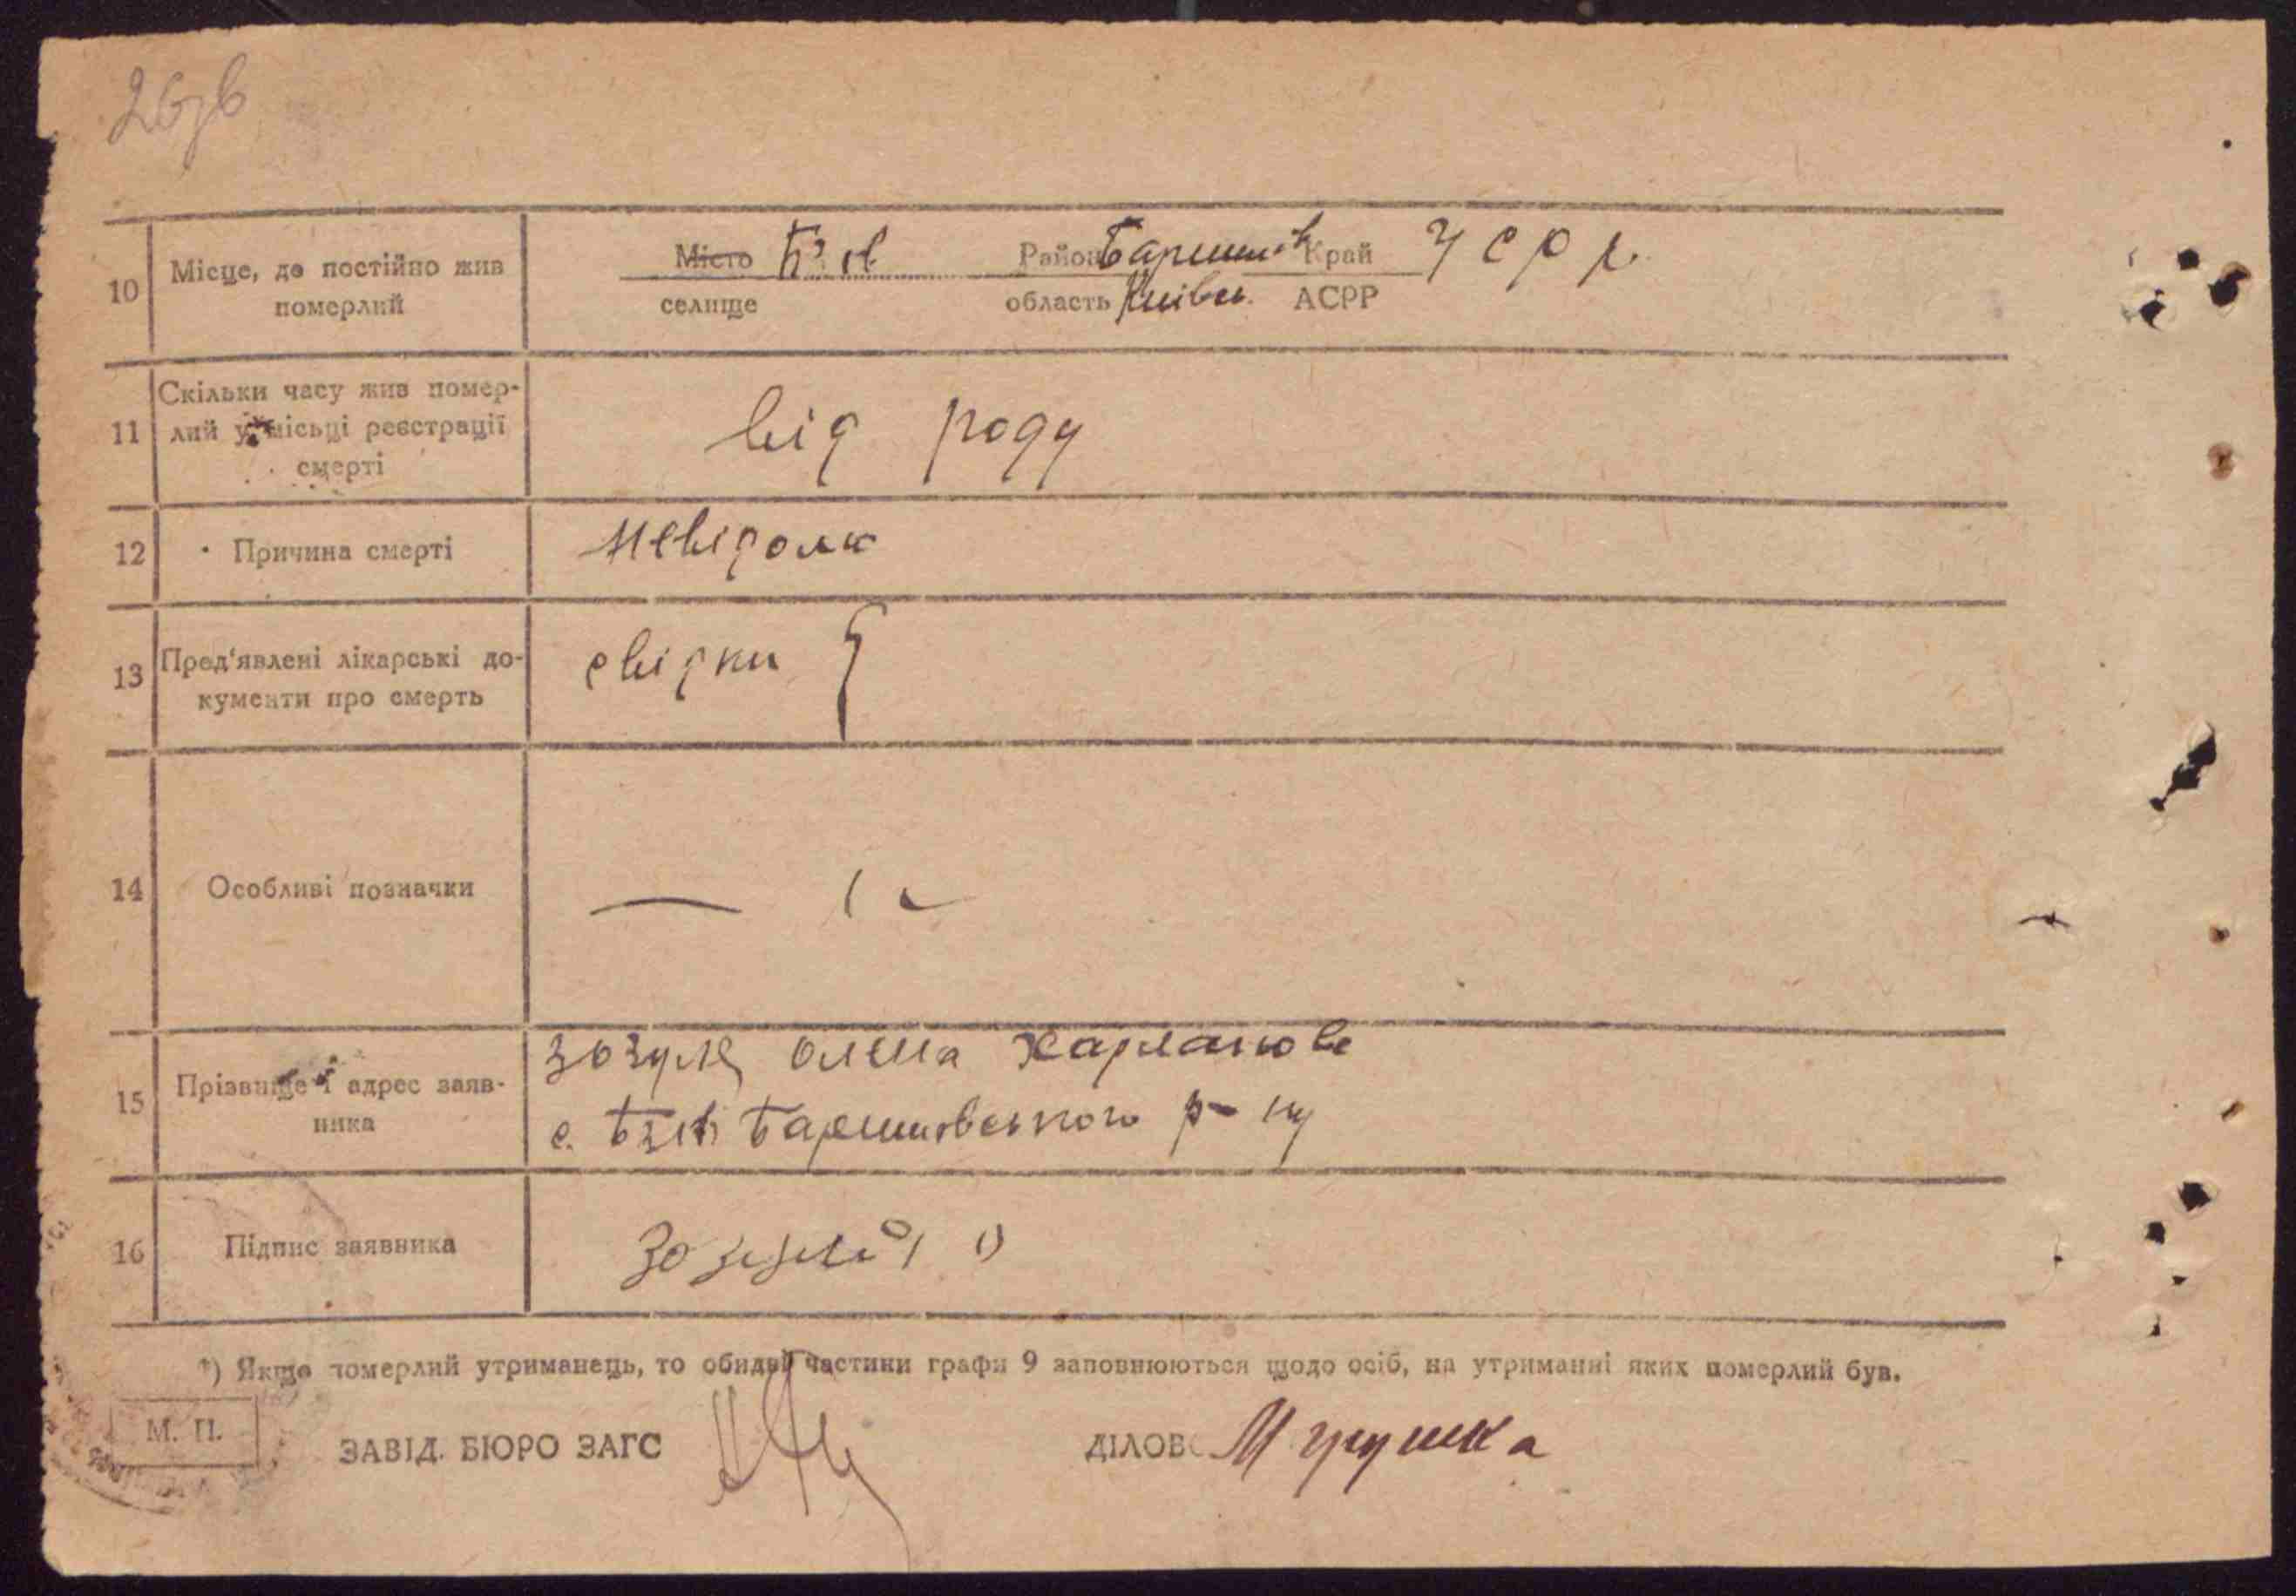 26зв
10 Місце, де постійно жив померлий
Місто Район Баришів Край УСРР
селище область Київськ. АСРР
11 Скільки часу жив помер-
лий у місьці реєстрації
смерті
від роду
12 Причина смерті
невідома
13 Пред'явлені лікарські до-
кументи про смерть
свідки
14 Особливі позначки
—
15 Прізвище і адрес заяв-
ника
Зозуля Олена
с. Баришівського р-ну
16 Підпис заявника
*) Якщо померлий утриманець, то обидві частини графи 9 заповнюються щодо осіб, на утриманні яких померлий був.
М. П.
ЗАВІД. БЮРО ЗАГС
ДІЛОВ